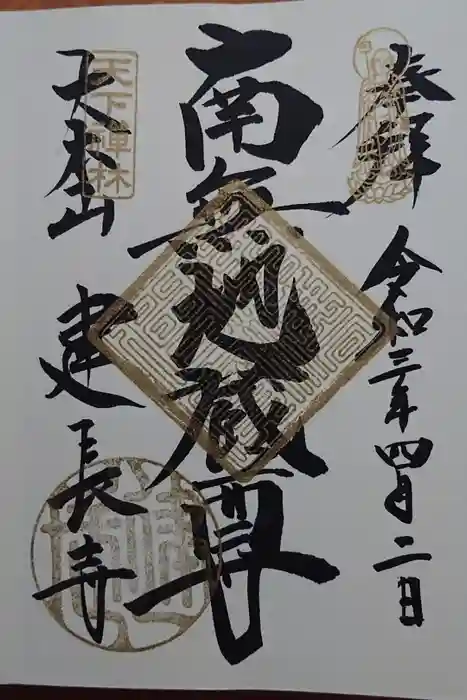 奉拝
令和三年四月二日
南無地蔵尊
天下禪林
大本山
建長寺